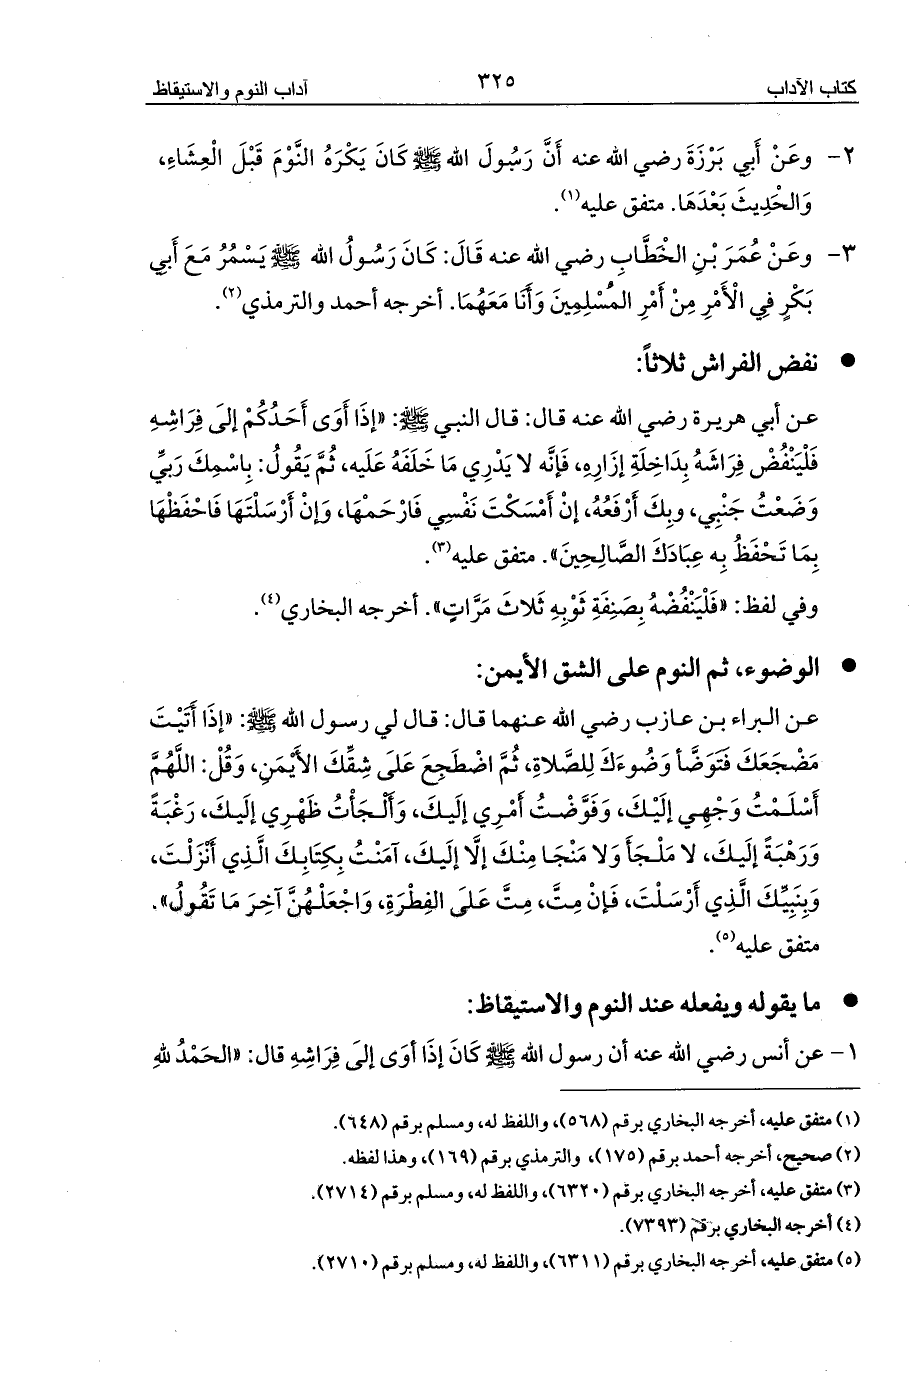 كتاب الآداب ٣٢٥ آداب النوم والاستيقاظ
٢- وعَنْ أَبِي بَرْزَةَ رضي الله عنه أَنَّ رَسُولَ الله ﷺ كَانَ يَكْرَهُ النَّوْمَ قَبْلَ الْعِشَاءِ،
وَالحْدِيثَ بَعْدَهَا. متفق عليه(١).
٣- وعَنْ عُمَرَ بْنِ الخْطَّابِ رضي الله عنه قَالَ: كَانَ رَسُولُ الله ﷺ يَسْمُرُ مَعَ أَبِي
بَكْرٍ فِي الْأَمْرِ مِنْ أَمْرِ المُسْلِمِينَ وَأَنَا مَعَهُمَا. أخرجه أحمد والترمذي(٢).
● نفض الفراش ثلاثاً:
عن أبي هريرة رضي الله عنه قال: قال النبي ﷺ: «إِذَا أَوَى أَحَدُكُمْ إلَى فِرَاشِهِ
فَلْيَنْفُضْ فِرَاشَهُ بِدَاخِلَةِ إِزَارِهِ، فَإِنَّه لا يَدْرِي مَا خَلَفَهُ عَلَيه، ثُمَّ يَقُولُ: بِاسْمِكَ رَبِّي
وَضَعْتُ جَنْبِي، وبِكَ أَرْفَعُهُ، إنْ أَمْسَكْتَ نَفْسِي فَارْحمْهَا، وَإنْ أَرْسَلْتَهَا فَاحْفَظْهَا
بِمَا تَحْفَظُ بِه عِبَادَكَ الصَّالِحِينَ». متفق عليه(٣).
وفي لفظ: «فَلْيَنْفُضْهُ بِصَنِفَةِ ثَوْبِهِ ثَلاثَ مَرَّاتٍ». أخرجه البخاري(٤).
● الوضوء، ثم النوم على الشق الأيمن:
عن البراء بن عازب رضي الله عنهما قال: قال لي رسول الله ﷺ: «إذَا أَتَيْتَ
مَضْجَعَكَ فَتَوَضَّأ وَضُوءَكَ لِلصَّلاةِ، ثُمَّ اضْطَجِعَ عَلَى شِقِّكَ الأَيْمَنِ، وَقُلْ: اللَّهُمَّ
أَسْلَمْتُ وَجْهِي إلَيْكَ، وَفَوَّضْتُ أمْرِي إلَيكَ، وَأَلْجَأْتُ ظَهْرِي إلَيكَ، رَغْبَةً
وَرَهْبَةً إلَيكَ، لا مَلْجَأَ وَلا مَنْجَا مِنْكَ إلَّا إلَيكَ، آمَنْتُ بِكِتَابِكَ الَّذِي أَنْزَلْتَ،
وَبِنَبِيِّكَ الَّذِي أَرْسَلْتَ، فَإنْ مِتَّ، مِتَّ عَلَى الفِطْرَةِ، وَاجْعَلْهُنَّ آخِرَ مَا تَقُولُ».
متفق عليه(٥).
● ما يقوله ويفعله عند النوم والاستيقاظ:
١- عن أنس رضي الله عنه أن رسول الله ﷺ كَانَ إذَا أوَى إلَى فِرَاشِهِ قال: «الحَمْدُ للهِ
(١) متفق عليه، أخرجه البخاري برقم (٥٦٨)، واللفظ له، ومسلم برقم (٦٤٨).
(٢) صحيح، أخرجه أحمد برقم (١٧٥)، والترمذي برقم (١٦٩)، وهذا لفظه.
(٣) متفق عليه، أخرجه البخاري برقم (٦٣٢٠)، واللفظ له، ومسلم برقم (٢٧١٤).
(٤) أخرجه البخاري برقم (٧٣٩٣).
(٥) متفق عليه، أخرجه البخاري برقم (٦٣١١)، واللفظ له، ومسلم برقم (٢٧١٠).